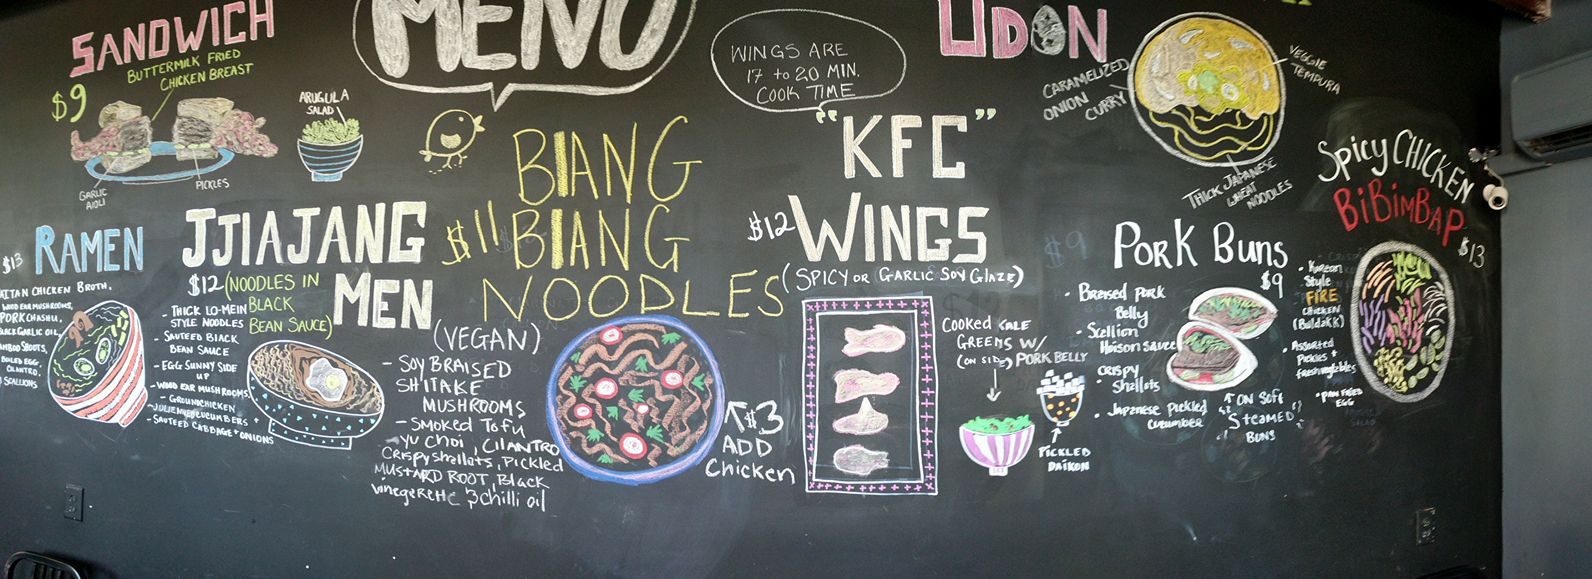 SANDWICH
BUTTERMILK FRIED
CHICKEN BREAST
$9
ARUGULA
SALAD
GARLIC
AIOLI
PICKLES
MENU
WINGS ARE
17 to 20 MIN.
COOK TIME
UDON
CARAMELIZED
ONION
CURRY
VEGGIE
TEMPURA
THICK JAPANESE
WHEAT
NOODLES
$13 RAMEN
CHICKEN BROTH,
WOOD EAR MUSHROOMS,
PORK CHASHU,
BLACK GARLIC OIL,
BAMBOO SHOOTS,
BOILED EGG,
CILANTRO,
SCALLIONS
JJIAJANG
MEN
$12 (NOODLES IN
BLACK
BEAN SAUCE)
- THICK LO-MEIN
STYLE NOODLES
- SAUTEED BLACK
BEAN SAUCE
- EGG SUNNY SIDE
UP
- WOOD EAR MUSHROOMS,
- GROUND CHICKEN
- JULIENNED CUCUMBERS +
- SAUTEED CABBAGE + ONIONS
BIANG
$11 BIANG
NOODLES
(VEGAN)
- SOY BRAISED
SHITAKE
MUSHROOMS
- SMOKED TOFU
YU CHOI, CILANTRO
CRISPY SHALLOTS, PICKLED
MUSTARD ROOT, BLACK
VINEGERETTE & chilli oil
$3
ADD
Chicken
"KFC"
$12 WINGS
(SPICY OR GARLIC SOY GLAZE)
COOKED KALE
GREENS W/
(ON SIDE) PORK BELLY
PICKLED
DAIKON
$9
PORK BUNS
$9
- Braised Pork
Belly
- Scallion
Hoison Sauce
- CRISPY
Shallots
- Japanese Pickled
cucumber
ON SOFT
STEAMED
BUNS
Spicy CHICKEN
BiBiMBAP
$13
- Korean
Style
FIRE
CHICKEN
(Buldakk)
- Assorted
Pickles +
fresh vegetables
- PAN FRIED
EGG